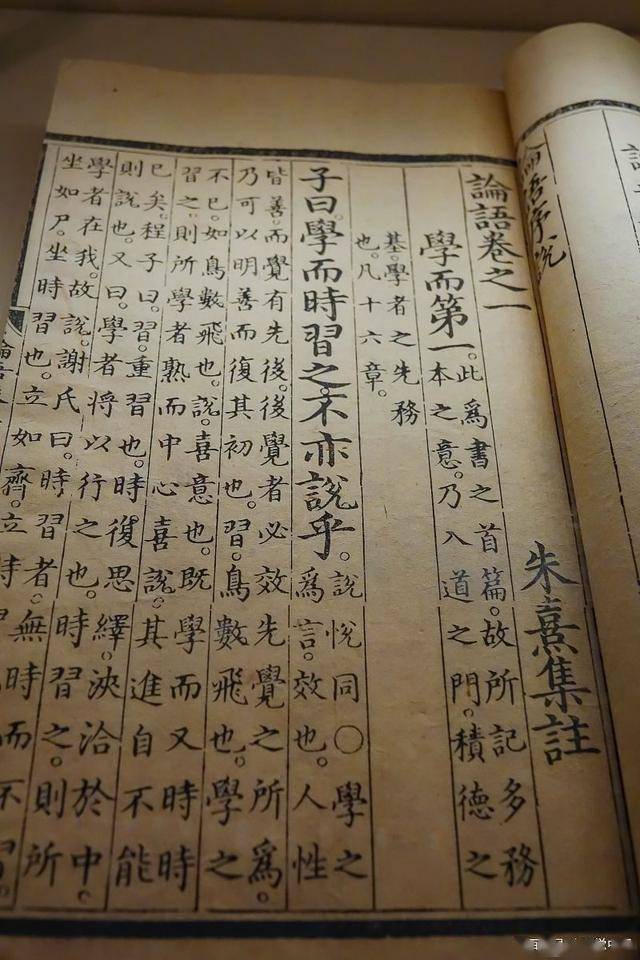 論語序說
論語卷之一 朱熹集註
學而第一。
此爲書之首篇。故所記多務
本之意。乃入道之門。積德之
基。學者之先務
也。凡十六章。
子曰。學而時習之。不亦說乎。
說悅同〇學之
爲言。效也。人性
皆善。而覺有先後。後覺者必效先覺之所爲。
乃可以明善而復其初也。習。鳥數飛也。學之
不已。如鳥數飛也。說。喜意也。既學而又時時
習之。則所學者熟而中心喜說。其進自不能
已矣。程子曰。習。重習也。時復思繹。浹洽於中。
則說也。又曰。學者將以行之也。時習之。則所
學者在我。故說。謝氏曰。時習者。無時而不習。
坐如尸。坐時習也。立如齊。立時